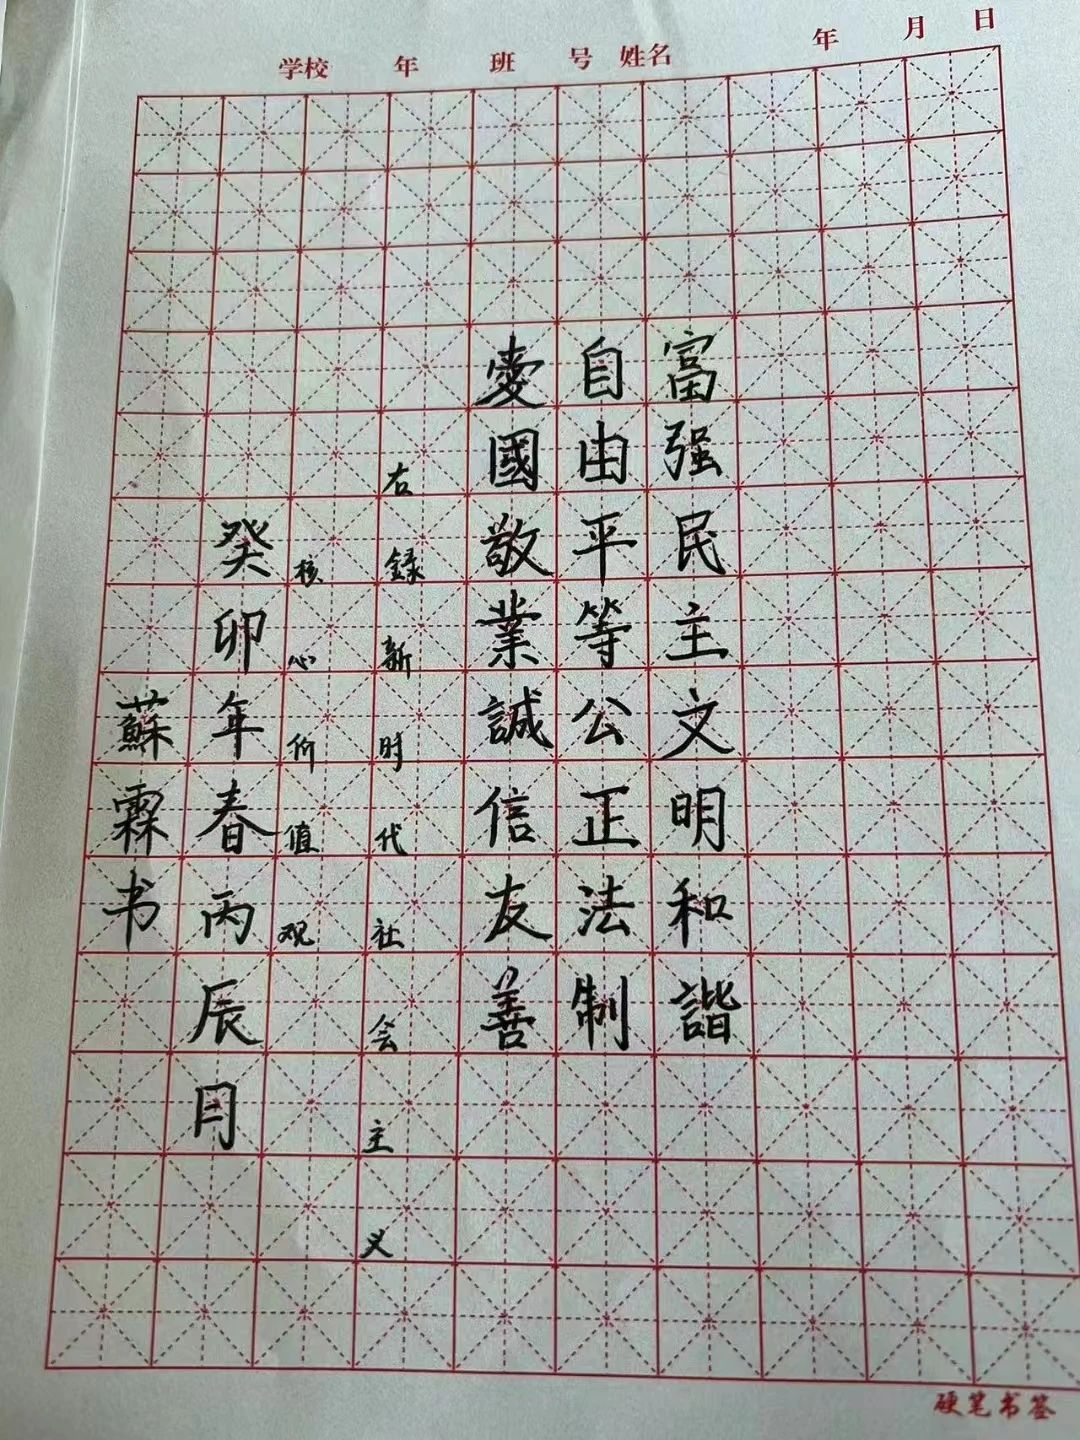 学校 年 班 号 姓名 年 月 日
富强民主文明和諧
自由平等公正法制
愛國敬業誠信友善
右録新时代社会主义
核心价值观
癸卯年春丙辰月
蘇霖书
硬笔书签